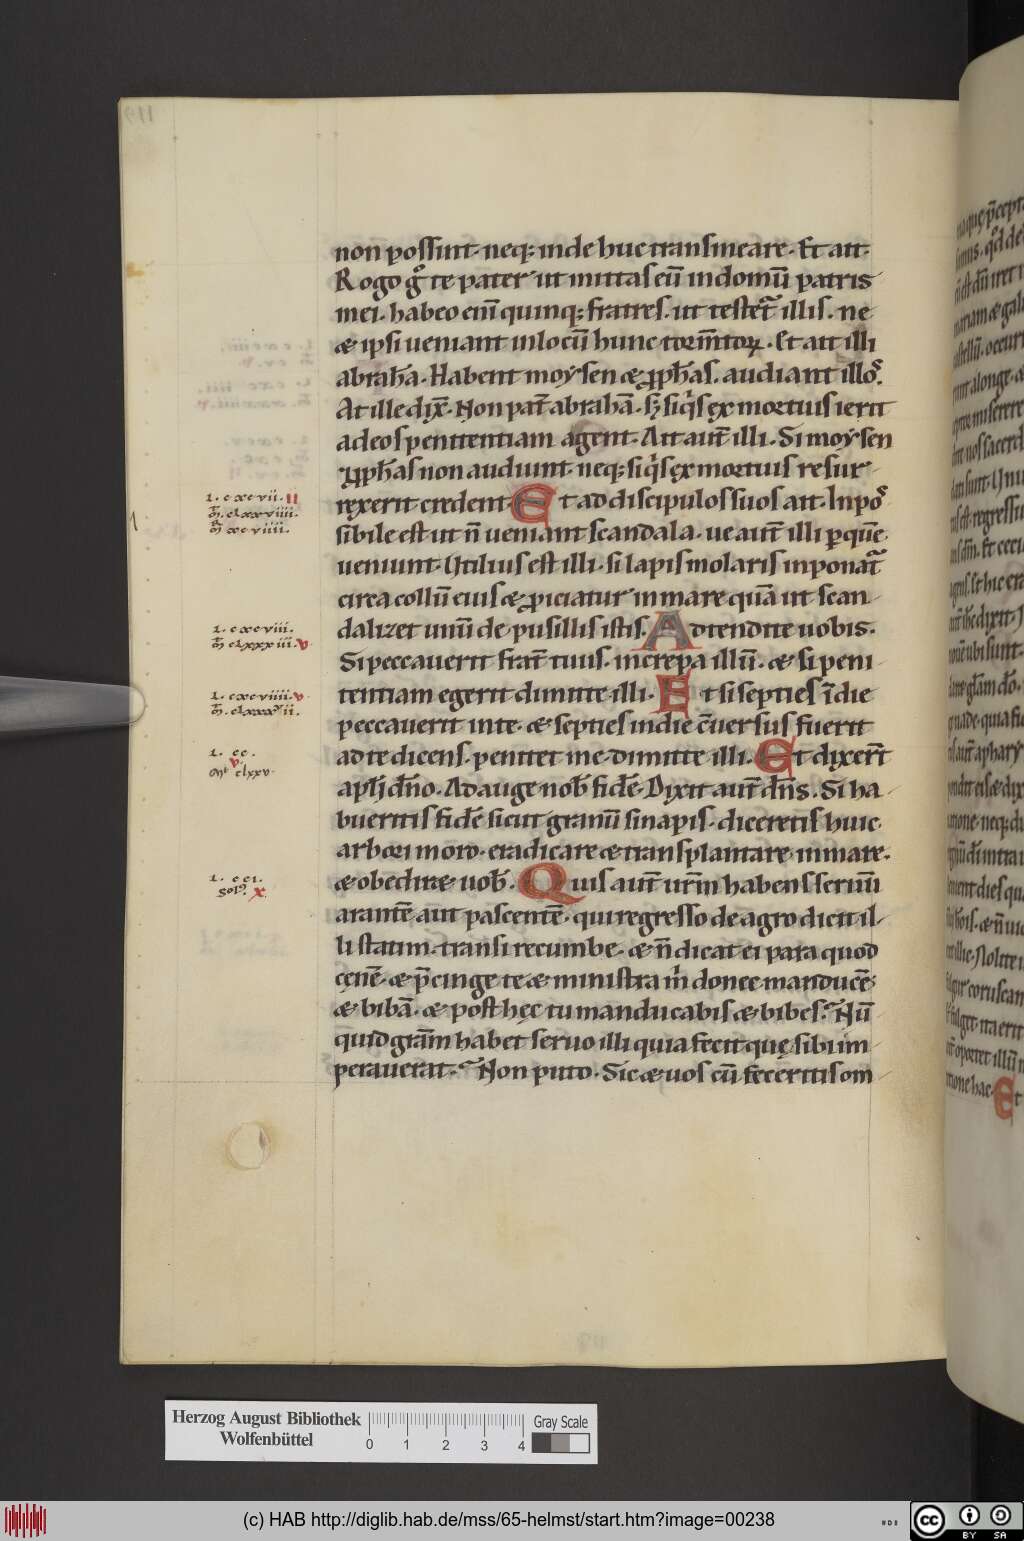 non possunt· neq; inde huc transmeare· Et ait·
Rogo gͦ te pater ut mittas eū indomū patris
mei· habeo eni̅ quinq; fratres· ut testet᷑ illis· ne
& ipsi ueniant inlocū hunc torm̅toꝝ· Et ait illi
abrahā· Habent moẏsen & ꝓph̅as· audiant illoꝰ.
At ille dix̅· Non pat̅ abrahā· sꝫ siq's ęx mortuis ierit
adeos penitentiam agent· Ait aut̅ illi· Si moẏsen
ꝓph̅as non audiunt· neq; siq's ęx mortuis resur
rexerit credent· Et ad discipulos suos ait· Inpoꝰ
sibile est ut n̅ ueniant scandala· ue aut̅ illi ꝑ quē
ueniunt· Utilius est illi· si lapis molaris inponat᷑
circa collū eius & ꝓiciatur in mare quā ut scan
dalizet unū de pusillis istis. Adtendite uobis·
Si peccauerit frat̅ tuus· increpa illū· & si peni
tentiam egerit dimitte illi· Et si septies i̅ die
peccauerit in te· & septies in die c̅uersus fuerit
ad te dicens· penitet me· dimitte illi· Et dixer̅t
apl̅i dn̅o· Adauge nob̅ fidē· Dixit aut̅ dn̅s· Si ha
bueritis fidē sicut granū sinapis· diceretis huic
arbori moro· eradicare & transplantare in mare·
& obediræ uob̅· Quis aut̅ ur̅m habens seruū
arantē aut pascentē· qui regresso de agro dicit il
li statim· transi recumbe· & n̅ dicat ei para quod
cęnē· & p̅cinge te & ministra m' donec manducē
& bibā· & post hęc tu manducabis & bibes· Nū
quid gr̅am habet seruo illi quia fecit quę sibi im
perauerat· Non puto· Sic & uos cū feceritis om
l· cxcvii· II
m̅· clxxviiii·
m̅ xcviiii·
l· cxcviii·
m̅ clxxxiii· v
l· cxcviiii· v
l· cc·
v
clxxv
l· cci·
sol' x
Herzog August Bibliothek
Wolfenbüttel
0 1 2 3 4
Gray Scale
(c) HAB http://diglib.hab.de/mss/65-helmst/start.htm?image=00238
cc BY SA